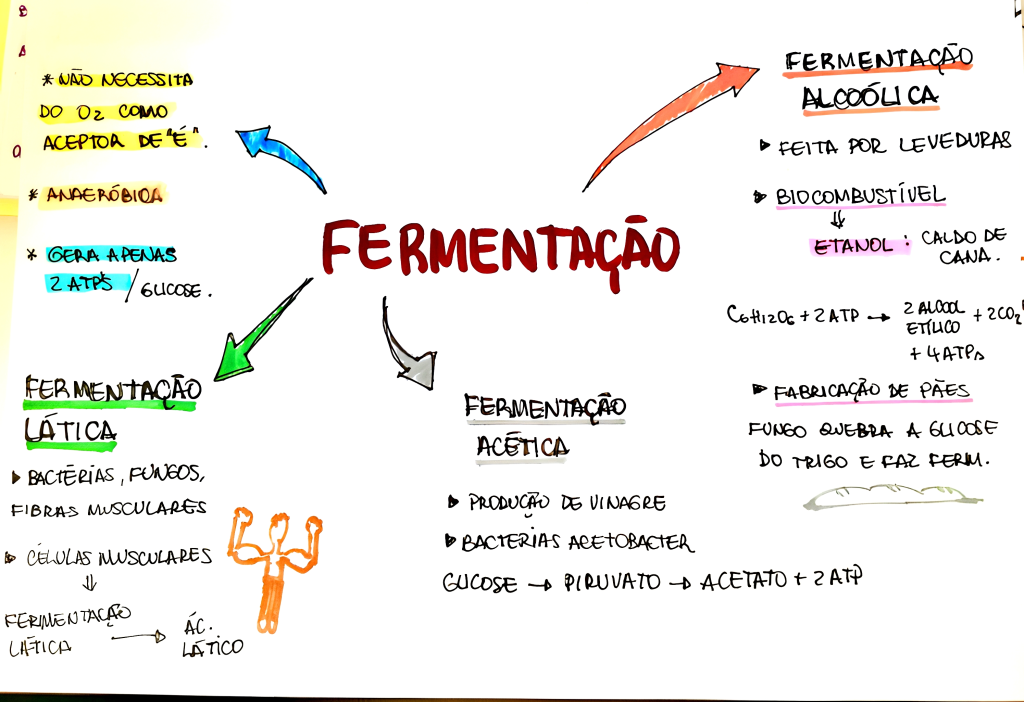 FERMENTAÇÃO
* NÃO NECESSITA
DO O2 COMO
ACEPTOR DE "É".
* ANAERÓBICA
* GERA APENAS
2 ATP'S / GLICOSE.
FERMENTAÇÃO
ALCOÓLICA
▸ FEITA POR LEVEDURAS
▸ BIOCOMBUSTÍVEL
⇓
ETANOL : CALDO DE
CANA.
C6H12O6 + 2 ATP → 2 ALCOOL ETÍLICO + 2CO2
+ 4 ATPs
▸ FABRICAÇÃO DE PÃES
FUNGO QUEBRA A GLICOSE
DO TRIGO E FAZ FERM.
FERMENTAÇÃO
LÁTICA
▸ BACTÉRIAS, FUNGOS,
FIBRAS MUSCULARES
▸ CÉLULAS MUSCULARES
⇓
FERMENTAÇÃO
LÁTICA → ÁC.
LÁTICO
FERMENTAÇÃO
ACÉTICA
▸ PRODUÇÃO DE VINAGRE
▸ BACTÉRIAS ACETOBACTER
GLICOSE → PIRUVATO → ACETATO + 2 ATP